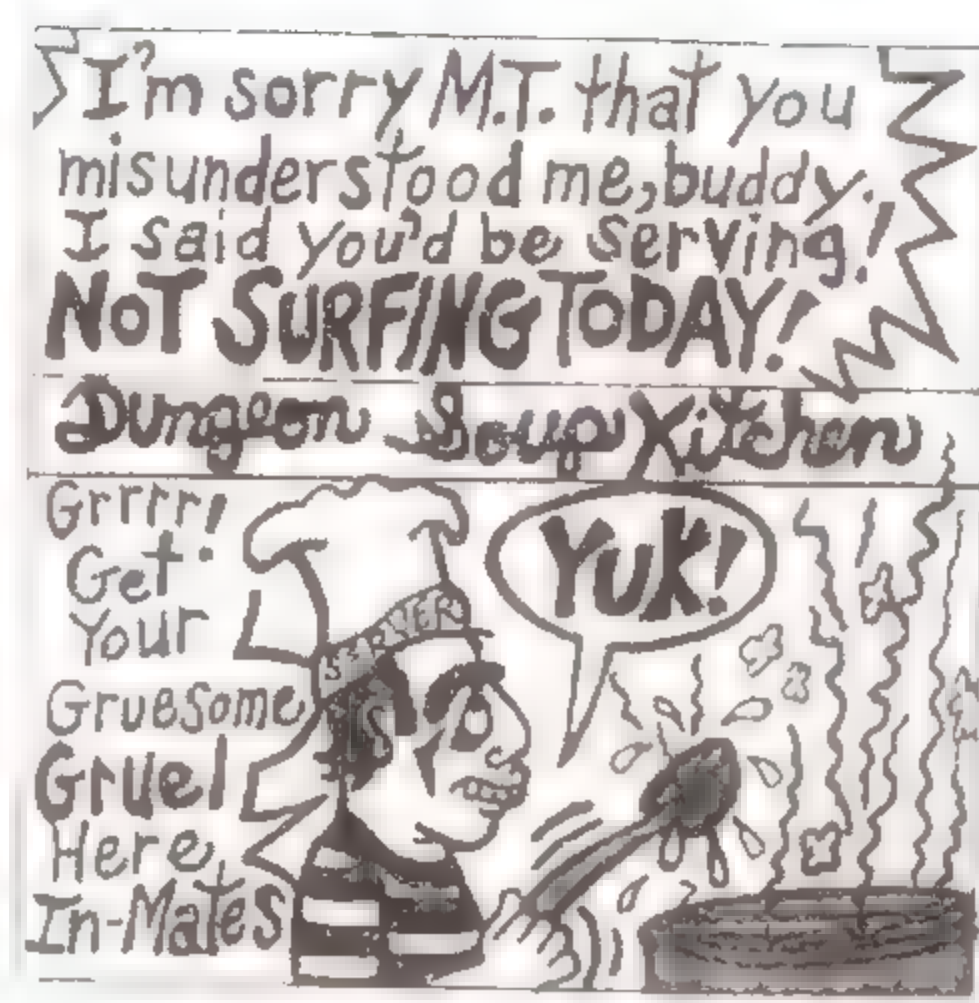 I'm sorry M.T. that you
misunderstood me, buddy.
I said you'd be serving!
NOT SURFING TODAY!
Dungeon Soup Kitchen
Grrrr!
Get
Your
Gruesome
Gruel
Here,
In-Mates
SERVER
YUK!